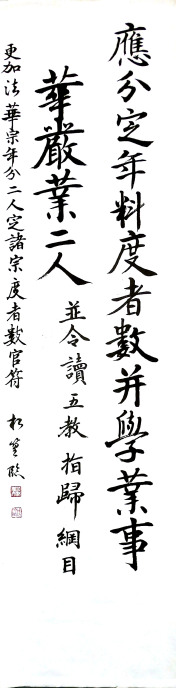 應分定年料度者數并學業事
華嚴業二人 並令讀五教指歸綱目
更加法華宗年分二人定諸宗度者數官符 松篁臨